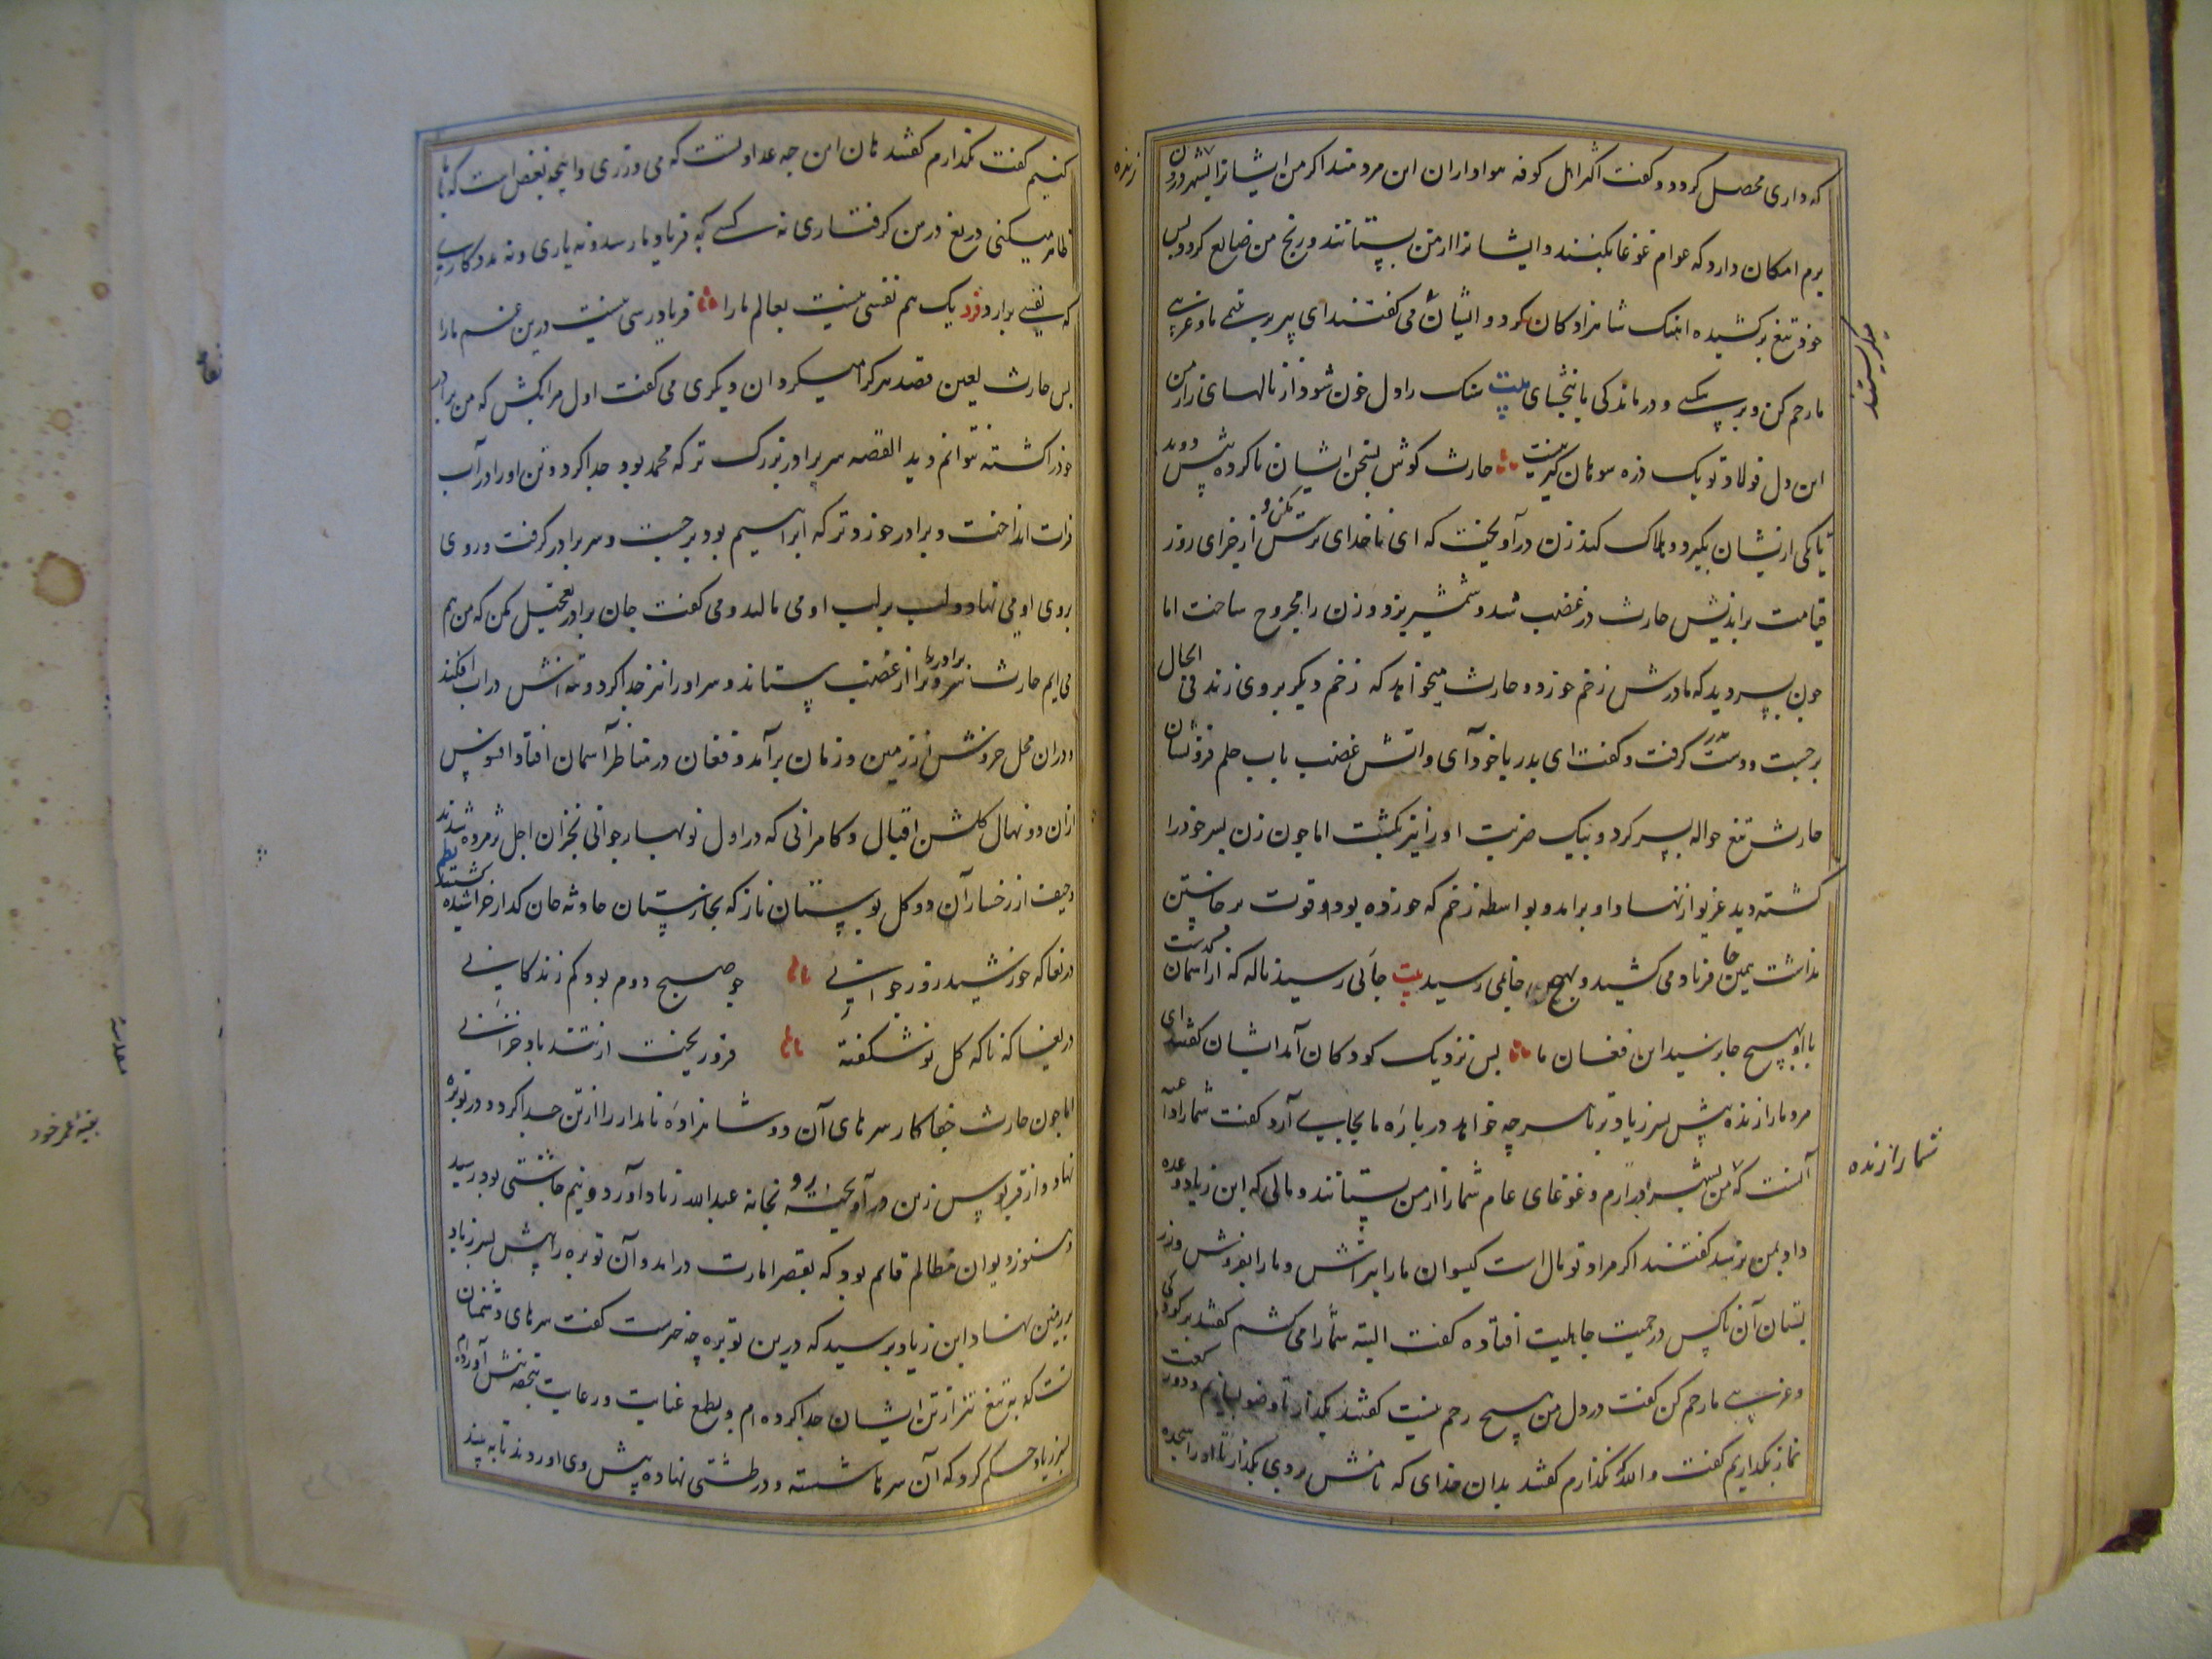 که داری محصل کردد و کفت اکثر اهل کوفه هوا داران این مردمند اکر من ایشانرا بشهر درون
برم امکان دارد که عوام غوغا بکنند و ایشانرا از من بستانند و رنج من ضایع کردد پس
خود تیغ برکشیده اهنک شاهزادکان کرد و ایشان می کفتند ای پیر بر یتیمی ما و غریبی
ما رحم کن و بر بیکسی و درماندکی ما ببخشای بیت سنک را دل خون شود از نالهای زار من
این دل فولاد تو یک ذره سوهان کیر نیست حارث کوش بسخن ایشان ناکرده پیش دوید
تا یکی ازیشان بکیرد و هلاک کند زن در آویخت که ای ناخدای ترس مکن و از جزای روز
قیامت براندیش حارث در غضب شد و شمشیر بزد و زن را مجروح ساخت اما
چون پسر دید که مادرش زخم خورد و حارث میخواهد که زخم دیکر بروی زند فی الحال
برجست و دست پدر کرفت و کفت ای پدر با خود آی و اتش غضب باب حلم فرو نشان
حارث تیغ حواله پسر کرد و بیک ضربت او را نیز بکشت اما چون زن پسر خود را
کشته دید غریو از نهاد او برامد و بواسطه زخم که خورده بود و قوت برخاستن
نداشت همین جا فریاد می کشید و بهیچ جائی نمی رسید بیت جائی رسید ناله که از اسمان گذشت
با او بهیچ جا نرسید این فغان ما پس نزدیک کودکان آمد ایشان کفتند ای
مرد ما را زنده پیش پسر زیاد بر تا هر چه خواهد درباره ما بجای آرد کفت شما را داعیه
آنست که من بشهر درارم و غوغای عام شما را از من بستانند و مالی که ابن زیاد وعده
داده بمن نرسد کفتند اکر مراد تو مال است کیسوان ما را بتراش و ما را بفروش و زر
بستان آن ناکس در حمیت جاهلیت افتاده کفت البته شما را می کشم کفتند بر کودکی
و غریبی ما رحم کن کفت در دل من هیچ رحم نیست کفتند بکذار تا وضو بسازیم و دو رکعت
نماز بکذاریم کفت والله نکذارم کفتند بدان خدای که نامش بردی بکذار تا او را سجده
شما را زنده
زنده
کنیم کفت نکذارم کفتند هان این چه عداوتست که می ورزی و این چه بغض است که با ما
ظاهر میکنی دریغ درمن کرفتاری نه کسی که فریاد ما رسد و نه یاری و نه مددکاری
که نفسی برارد فرد یک هم نفسی نیست بعالم ما را فریادرسی نیست درین غم ما را
پس حارث لعین قصد هر کرا میکرد ان دیکری می کفت اول مرا بکش که من برادر
خود را کشته نتوانم دید القصه سر برادر بزرک تر که محمد بود جدا کرد و تن او را در آب
فرات انداخت و برادر خوردتر که ابراهیم بود برجست و سر برادر کرفت و روی
بروی او می نهاد و لب بر لب او می مالید و می کفت جان برادر تعجیل مکن که من هم
می ایم حارث سر برادر را از غضب بستاند و سر او را نیز جدا کرد و تنش در اب افکند
دران محل خروش از زمین و زمان برآمد و فغان در مناظر آسمان افتاد افسوس
ازان دو نهال کلشن اقبال و کامرانی که در اول نوبهار جوانی بخزان اجل پژمرده شدند
و حیف از رخسار آن دو کل بوستان ناز که بخارستان حادثه جان کداز خراشیده کشتند نظم
دریغا که خورشید روز جوانی چو صبح دوم بود کم زندکانی
دریغا که ناکه کل نوشکفته فرو ریخت از تند باد خزانی
اما چون حارث جفاکار سرهای آن دو شاهزاده نامدار را از تن جدا کرد و در توبره
نهاد و از قربوس زین در آویخته رو بخانه عبدالله زیاد آورد و نیم چاشتی بود رسید
هنوز دیوان مظالم قایم بود که بقصر امارت درامد و آن توبره را پیش پسر زیاد
بر زمین نهاد ابن زیاد پرسید که درین توبره چه چیزست کفت سرهای دشمنان
تست که به تیغ تیز از تن ایشان جدا کرده ام و بطمع عنایت و رعایت بتحفه پیش آورده ام
پسر زیاد حکم کرد که آن سرها شسته و در طشتی نهاده پیش وی اوردند تا به بیند
بقیهٔ عمر خود